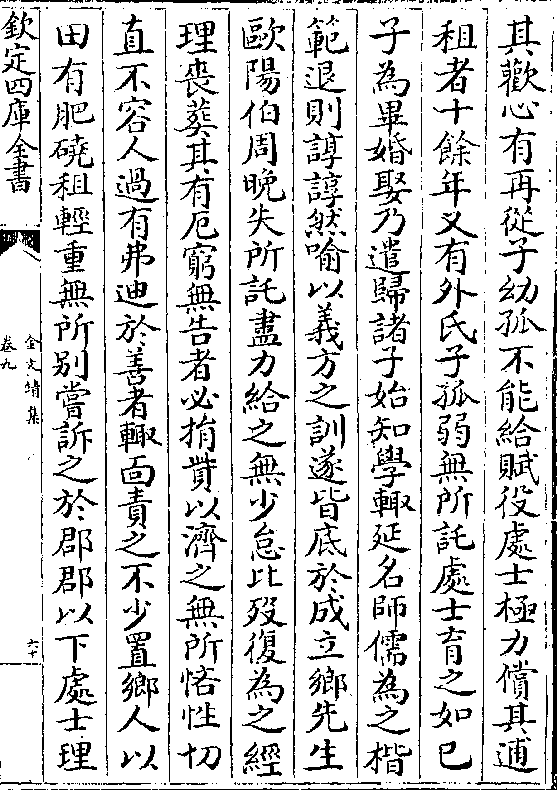 其歡心有再從子幼孤不能給賦役處士極力償其逋
租者十餘年又有外氏子孤弱無所託處士育之如已
子為畢婚娶乃遣歸諸子始知學輙延名師儒為之楷
範退則諄諄然喻以義方之訓遂皆底於成立鄉先生
歐陽伯周晚失所託盡力給之無少怠比歿復為之經
理喪葬其有厄窮無告者必捐貲以濟之無所悋性切
直不容人過有弗迪於善者輙面責之不少置鄉人以
田有肥磽租輕重無所别嘗訴之於郡郡以下處士理
欽定四庫全書
金文靖集
卷九
六十